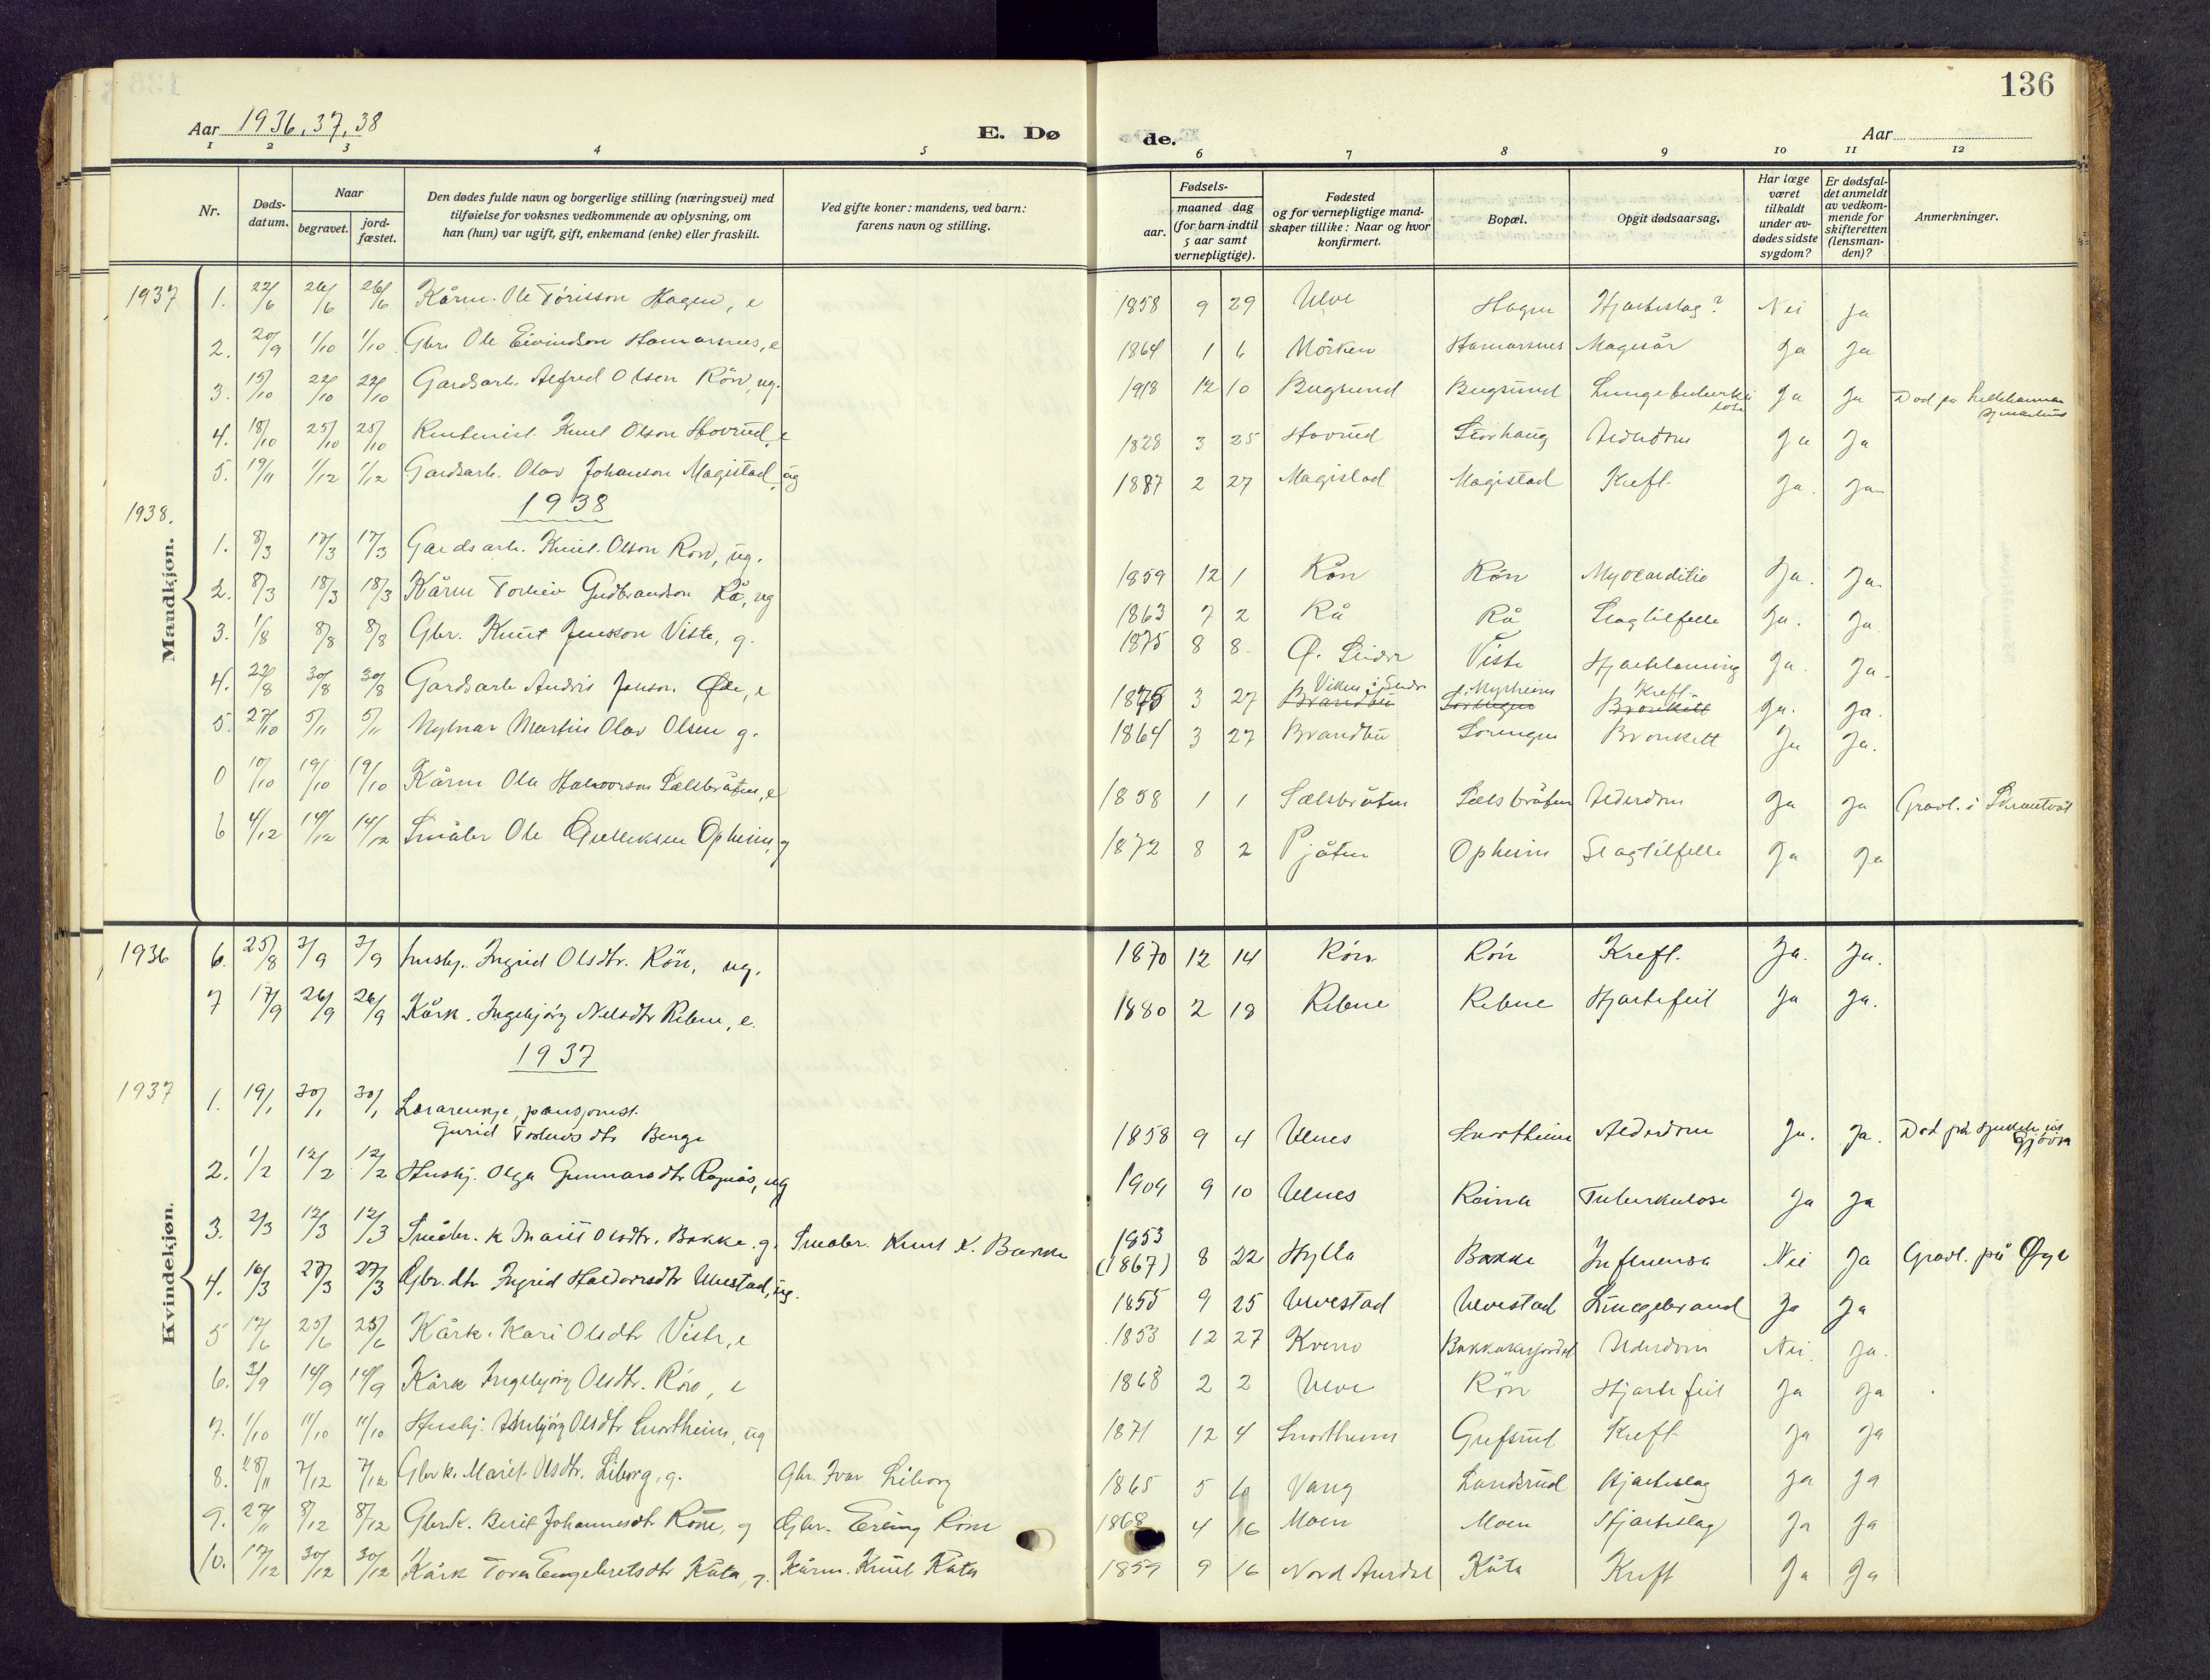 136
Aar 1936, 37, 38
E. Dø de.
Aar
1 2 3 4 5 6 7 8 9 10 11 12
Nr.
Døds-datum.
Naar
begravet.
jord-fæstet.
Den dødes fulde navn og borgerlige stilling (næringsvei) med
tilføielse for voksnes vedkommende av oplysning, om
han (hun) var ugift, gift, enkemand (enke) eller fraskilt.
Ved gifte koner: mandens, ved barn:
farens navn og stilling.
Fødsels-
aar.
maaned dag
(for barn indtil
5 aar samt
vernepligtige).
Fødested
og for vernepligtige mand-
skaper tillike: Naar og hvor
konfirmert.
Bopæl.
Opgit dødsaarsag.
Har læge
været
tilkaldt
under av-
dødes sidste
sygdom?
Er dødsfal-
det anmeldt
av vedkom-
mende for
skifteretten
(lensman-
den)?
Anmerkninger.
Mandkjøn.
1937 1. 22/6 26/6 26/6 Kårm. Ole Tørisson Hagen, e 1858 9 29 Ulve Hagen Hjarteslag? Nei Ja
2. 20/9 1/10 1/10 Gbr. Ole Eivindson Hamarsnes, e 1864 1 6 Mörken Hamarsnes Magesår Ja Ja
3. 15/10 22/10 22/10 Gardsarb. Alfred Olsen Rön, ug. 1918 12 10 Bugsund Bugsund Lungetuberkulose Ja Ja Död på Lillehammer sjukehus
4. 18/10 25/10 25/10 Knut Olson Hovrud, e 1828 3 25 Hovrud Storhaug Alderdom Ja Ja
5. 19/11 1/12 1/12 Gardsarb. Olav Johanson Magistad, ug 1887 2 27 Magistad Magistad Kreft Ja. Ja
1938. 1938
1. 8/3 17/3 17/3 Gardsarb. Knut Olson Rön, ug. 1859 12 1 Rön Rön Myocarditis Ja. Ja.
2. 8/3 18/3 18/3 Kårm Torleiv Gudbrandson Rå, ug 1863 7 2 Rå Rå Slagtilfelle Ja. Ja.
3. 1/8 8/8 8/8 Gbr. Knut Jensson Viste, g. 1875 8 8 Ø. Slidre Viste Hjartelaming Ja. Ja.
4. 22/8 30/8 30/8 Gardsarb Andris Jonson Øde, e 1875 3 27 Brandbu Viken i Slidr Sörengen Myrheim Bronkitt Kreft Ja. Ja.
5. 27/10 5/11 5/11 Mylnar Martin Olav Olsen g. 1864 3 27 Brandbu Sörengen Bronkitt Ja Ja.
0 10/10 19/10 19/10 Kårm Ola Halvorson Sælsbråten, e 1858 1 1 Sælsbråten Sælsbråten Alderdom Ja Ja Gravl. i Skrautvål
6 4/12 14/12 14/12 Småbr Ole Gulleiksen Opheim, g 1872 8 2 Pjåten Opheim Slagtilfelle Ja Ja
Kvindekjøn.
1936 6. 25/8 3/9 3/9 husbj. Ingrid Olsdtr. Rön, ug. 1870 12 14 Rön Rön Kreft. Ja. Ja.
7 17/9 26/9 26/9 Kårk. Ingebjörg Nelsdtr Rebne, e. 1880 2 18 Rebne Rebne Hjartefeil Ja Ja.
1937
1937 1. 19/1 30/1 30/1 Lærarenkje, pensjonist.
Gurid Torleivsdtr Berge 1858 9 4 Ulnes Snortheim Alderdom Ja. Ja. Död på sjukehus Gjövik
2. 1/2 12/2 12/2 Husbj. Olga Gunnarsdtr Rognås, ug 1909 9 10 Ulnes Raina Tuberkulose Ja Ja
3. 2/3 12/3 12/3 Småbr. k Marit Olsdtr. Bakke. g. Småbr. Knut K. Bakke 1853 (1867) 8 22 Hylla Bakke Influensa Nei Ja Gravl. på Øye
4. 16/3 27/3 27/3 Gbr. dtr Ingrid Haldorsdtr Ulvestad, ug. 1855 9 25 Ulvestad Ulvestad Lungebrand Ja Ja
5 17/6 25/6 25/6 Kårk. Kari Olsdtr Viste, e 1853 12 27 Kvero Alderdom Nei. Ja.
6. 3/9 14/9 14/9 Kårk Ingebjörg Olsdtr. Rön, e 1868 2 2 Ulve Rön Hjartefeil Ja Ja
7. 1/10 11/10 11/10 Husbj. Olsdtr Snortheim, ug 1871 12 4 Snortheim Grefsrud Kreft Ja Ja
8. 28/11 7/12 7/12 Gbrk. Marit Olsdtr. Liborg, g. Gbr. Ivar Liborg 1865 5 10 Vang Landsrud Hjarteslag Ja Ja
9. 27/11 8/12 8/12 Gbrk. Berit Johannesdtr Röine, g Gbr. Erling Röine 1868 4 16 Moen Moen Hjarteslag Ja Ja
10. 17/12 30/12 30/12 Kårk Tora Engebretsdtr Kåta, g. Kårm. Knut Kåta 1859 9 16 Nord Aurdal Kåta Kreft Ja Ja